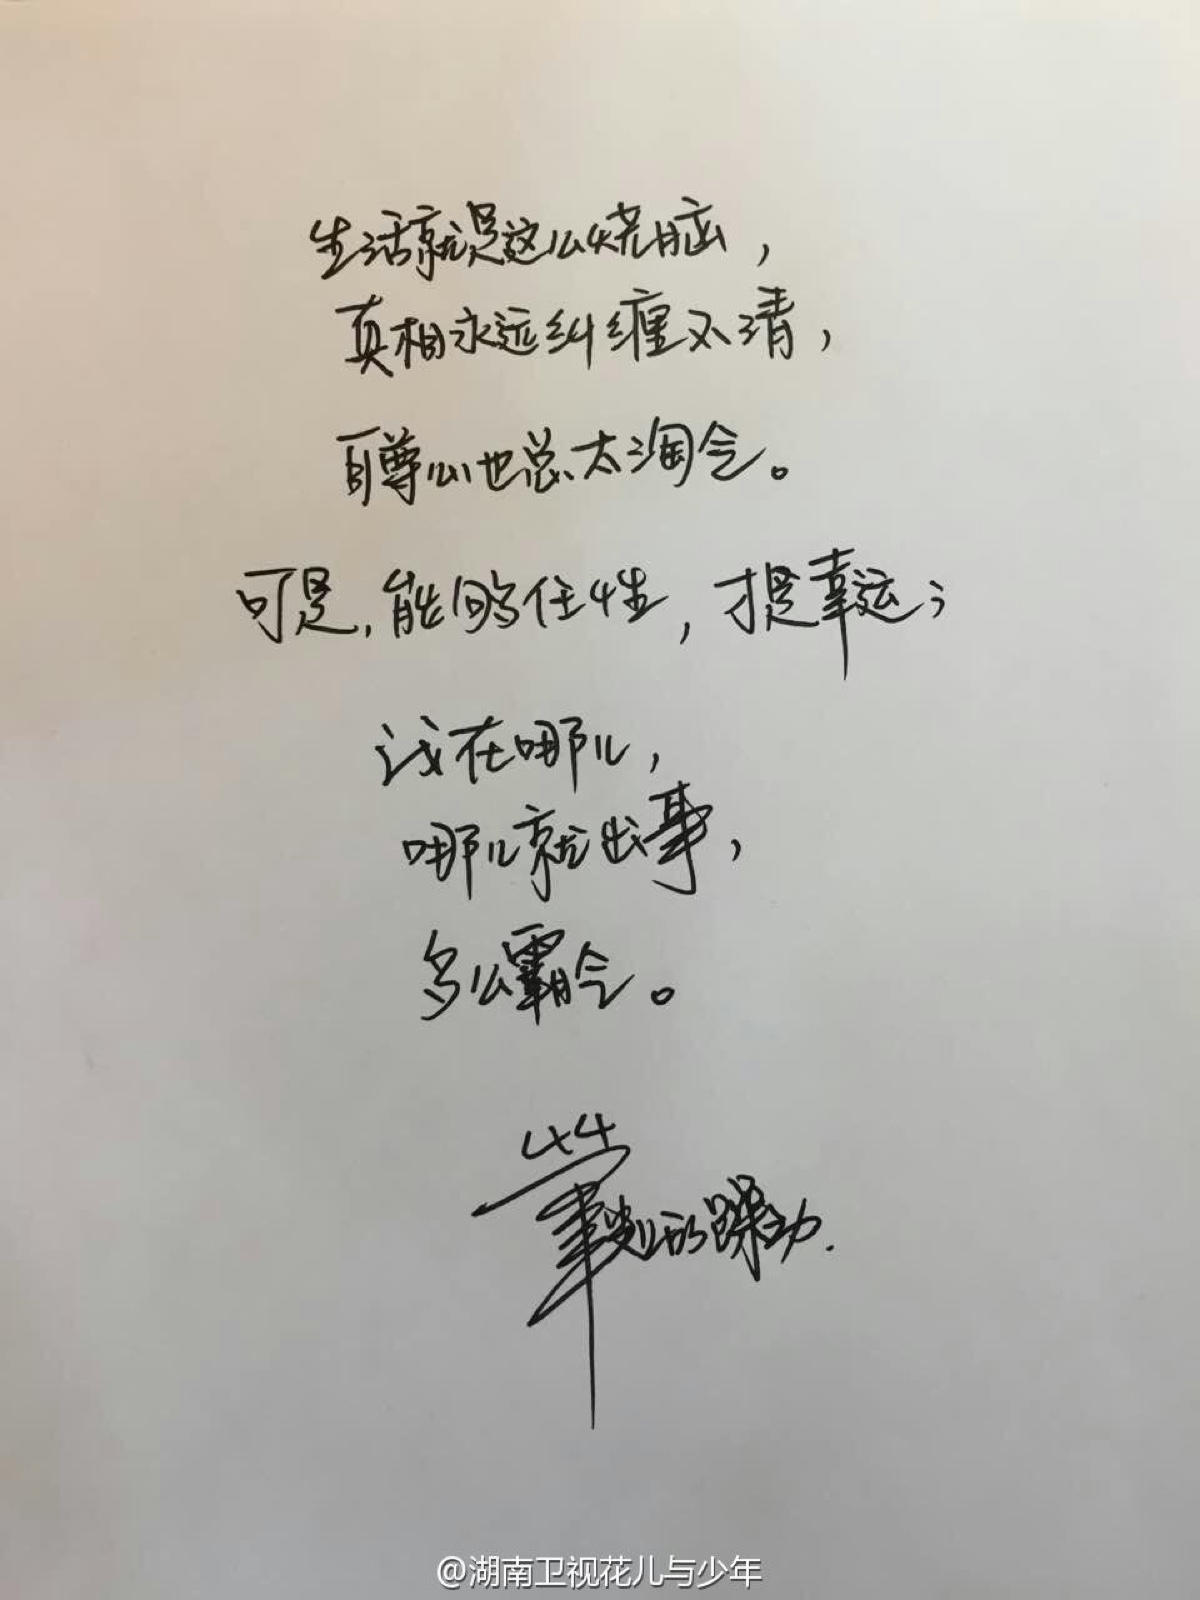 生活就是这么烧脑，
真相永远纠缠不清，
自尊心也总太淘气。
可是，能够任性，才是幸运；
我在哪儿，
哪儿就出事，
多么霸气。
的躁动.
@湖南卫视花儿与少年